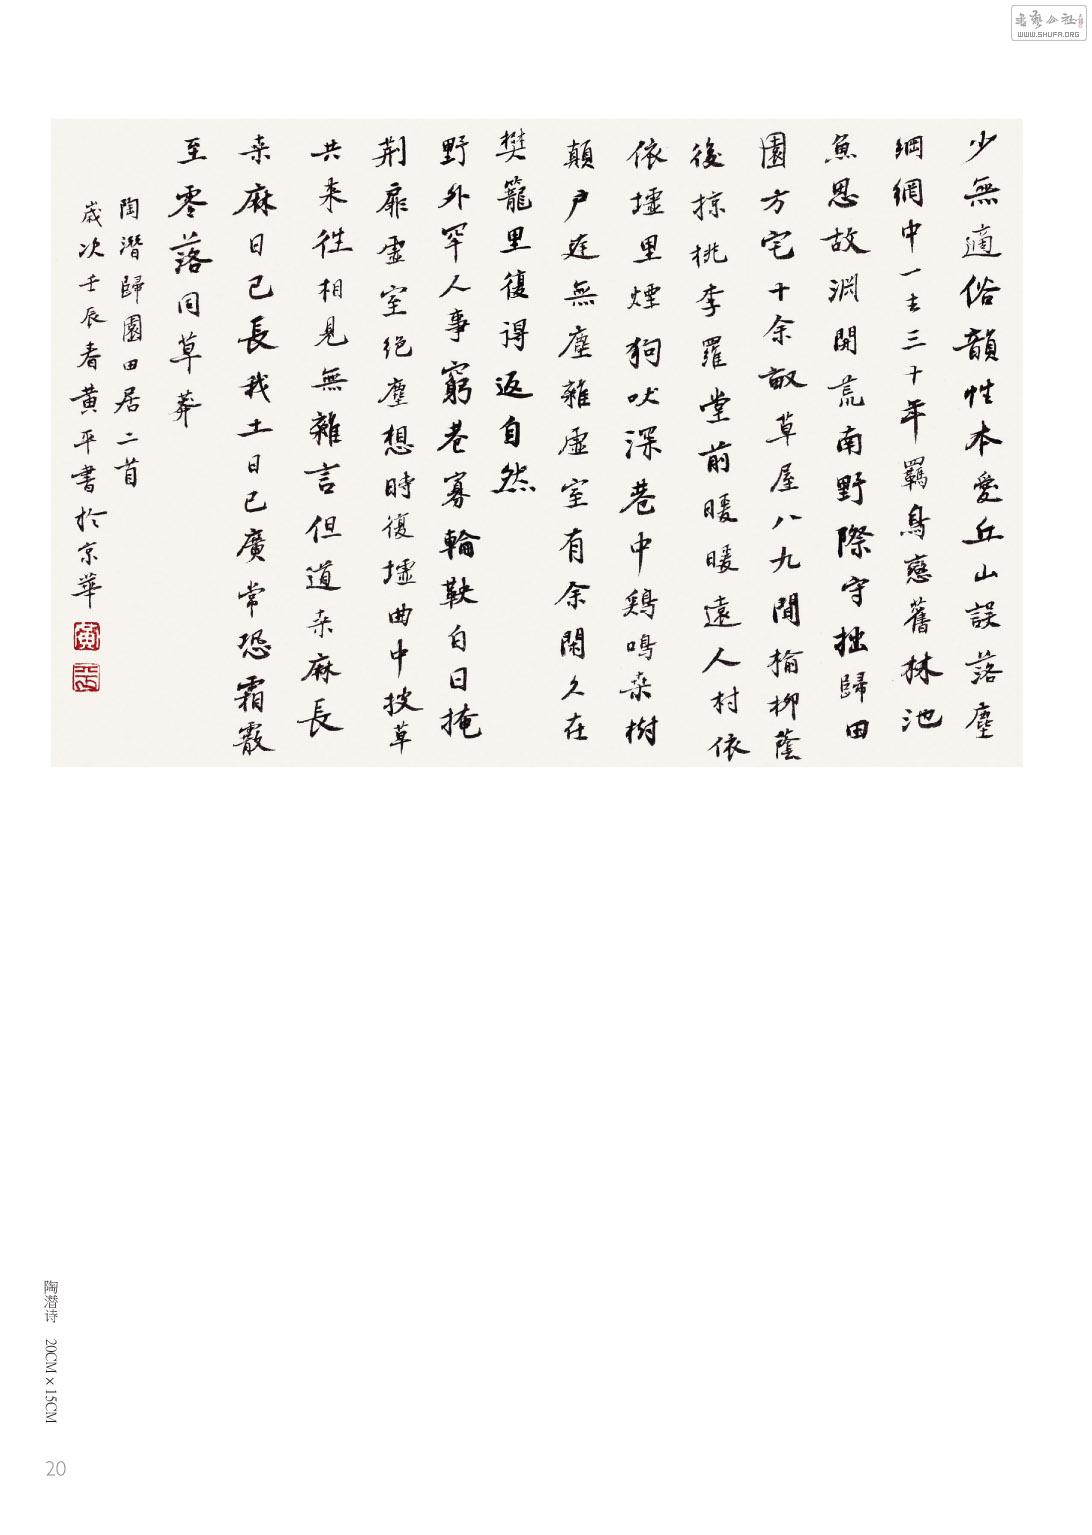 書藝公社
WWW.SHUFA.ORG
少無適俗韻性本愛丘山誤落塵
綱網中一去三十年羈鳥戀舊林池
魚思故淵開荒南野際守拙歸田
園方宅十余畝草屋八九間榆柳蔭
後掠桃李羅堂前暖暖遠人村依
依墟里煙狗吠深巷中鷄鳴桑樹
顛户庭無塵雜虛室有余閑久在
樊籠里復得返自然
野外罕人事窮巷寡輪鞅白日掩
荆扉虛室絕塵想時復墟曲中披草
共來往相見無雜言但道桑麻長
桑麻日已長我土日已廣常恐霜霰
至零落同草莽
陶潛歸園田居二首
歲次壬辰春黄平書於京華
黄
平
陶潜诗 20CM×15CM
20